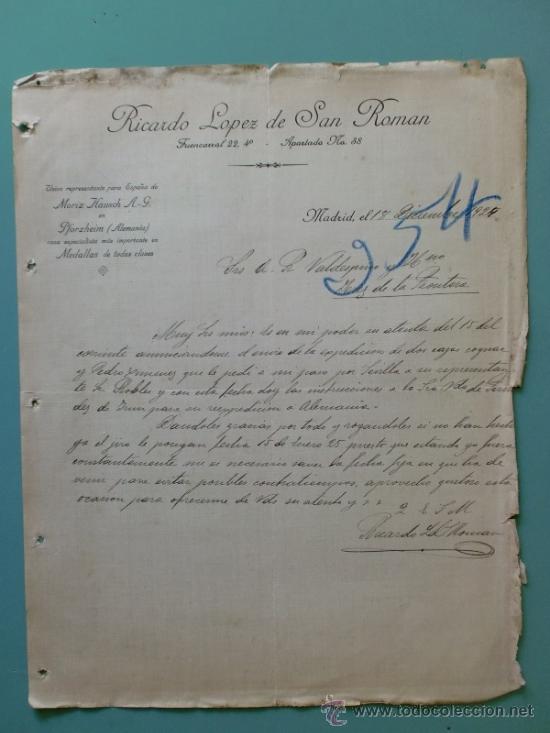 Ricardo Lopez de San Roman
Fuencarral 22, 4º - Apartado No. 88
Unico representante para España de
Moriz Hausch A.-G.
en
Pforzheim (Alemania)
casa especialista más importante en
Medallas de todas clases
Madrid, el 17 Diciembre 1924
954
Srs A. R. Valdespino y Hno
Jerez de la Frontera
Muy Srs mios: es en mi poder su atenta del 15 del
corriente anunciandome el envio de la expedicion de dos cajas cognac
y Pedro Jimenez que le pedi a mi paso por Sevilla a su representan
te Sr Robles y con esta fecha doy las instrucciones a la Sra Vda de
de Irun para su reexpedicion a Alemania.
Dandoles gracias por todo y rogandoles si no han hecho
ya el giro le pongan fecha 15 de Enero 25 puesto que estando yo fuera
constantemente me es necesario saver la fecha fija en que ha de
venir para evitar posibles contratiempos, aprovecho gustoso esta
ocasion para ofrecerme de Vds su atento y s s
Q E S M
Ricardo L de S Roman
todocoleccion
www.todocoleccion.net